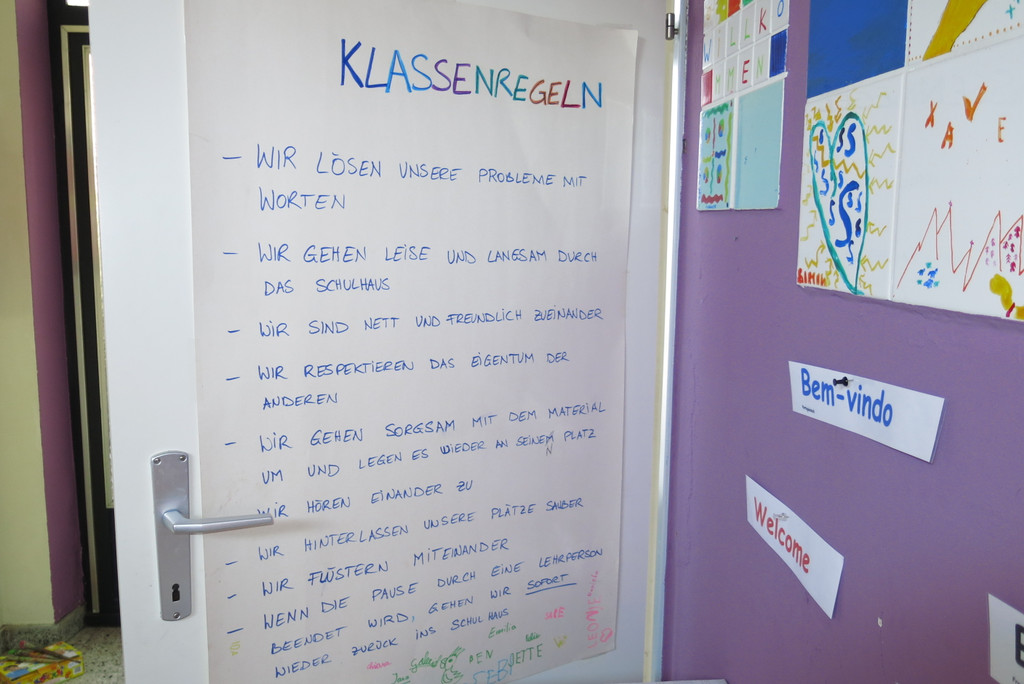 KLASSENREGELN
- WIR LÖSEN UNSERE PROBLEME MIT
WORTEN
- WIR GEHEN LEISE UND LANGSAM DURCH
DAS SCHULHAUS
- WIR SIND NETT UND FREUNDLICH ZUEINANDER
- WIR RESPEKTIEREN DAS EIGENTUM DER
ANDEREN
- WIR GEHEN SORGSAM MIT DEM MATERIAL
UM UND LEGEN ES WIEDER AN SEINEN PLATZ
WIR HÖREN EINANDER ZU
- WIR HINTERLASSEN UNSERE PLÄTZE SAUBER
- WIR FLÜSTERN MITEINANDER
- WENN DIE PAUSE DURCH EINE LEHRPERSON
BEENDET WIRD, GEHEN WIR SOFORT
WIEDER ZURÜCK INS SCHULHAUS
Emilia
BEN
WILLKO
MMEN
XAVE
SIMON
Bem-vindo
Welcome